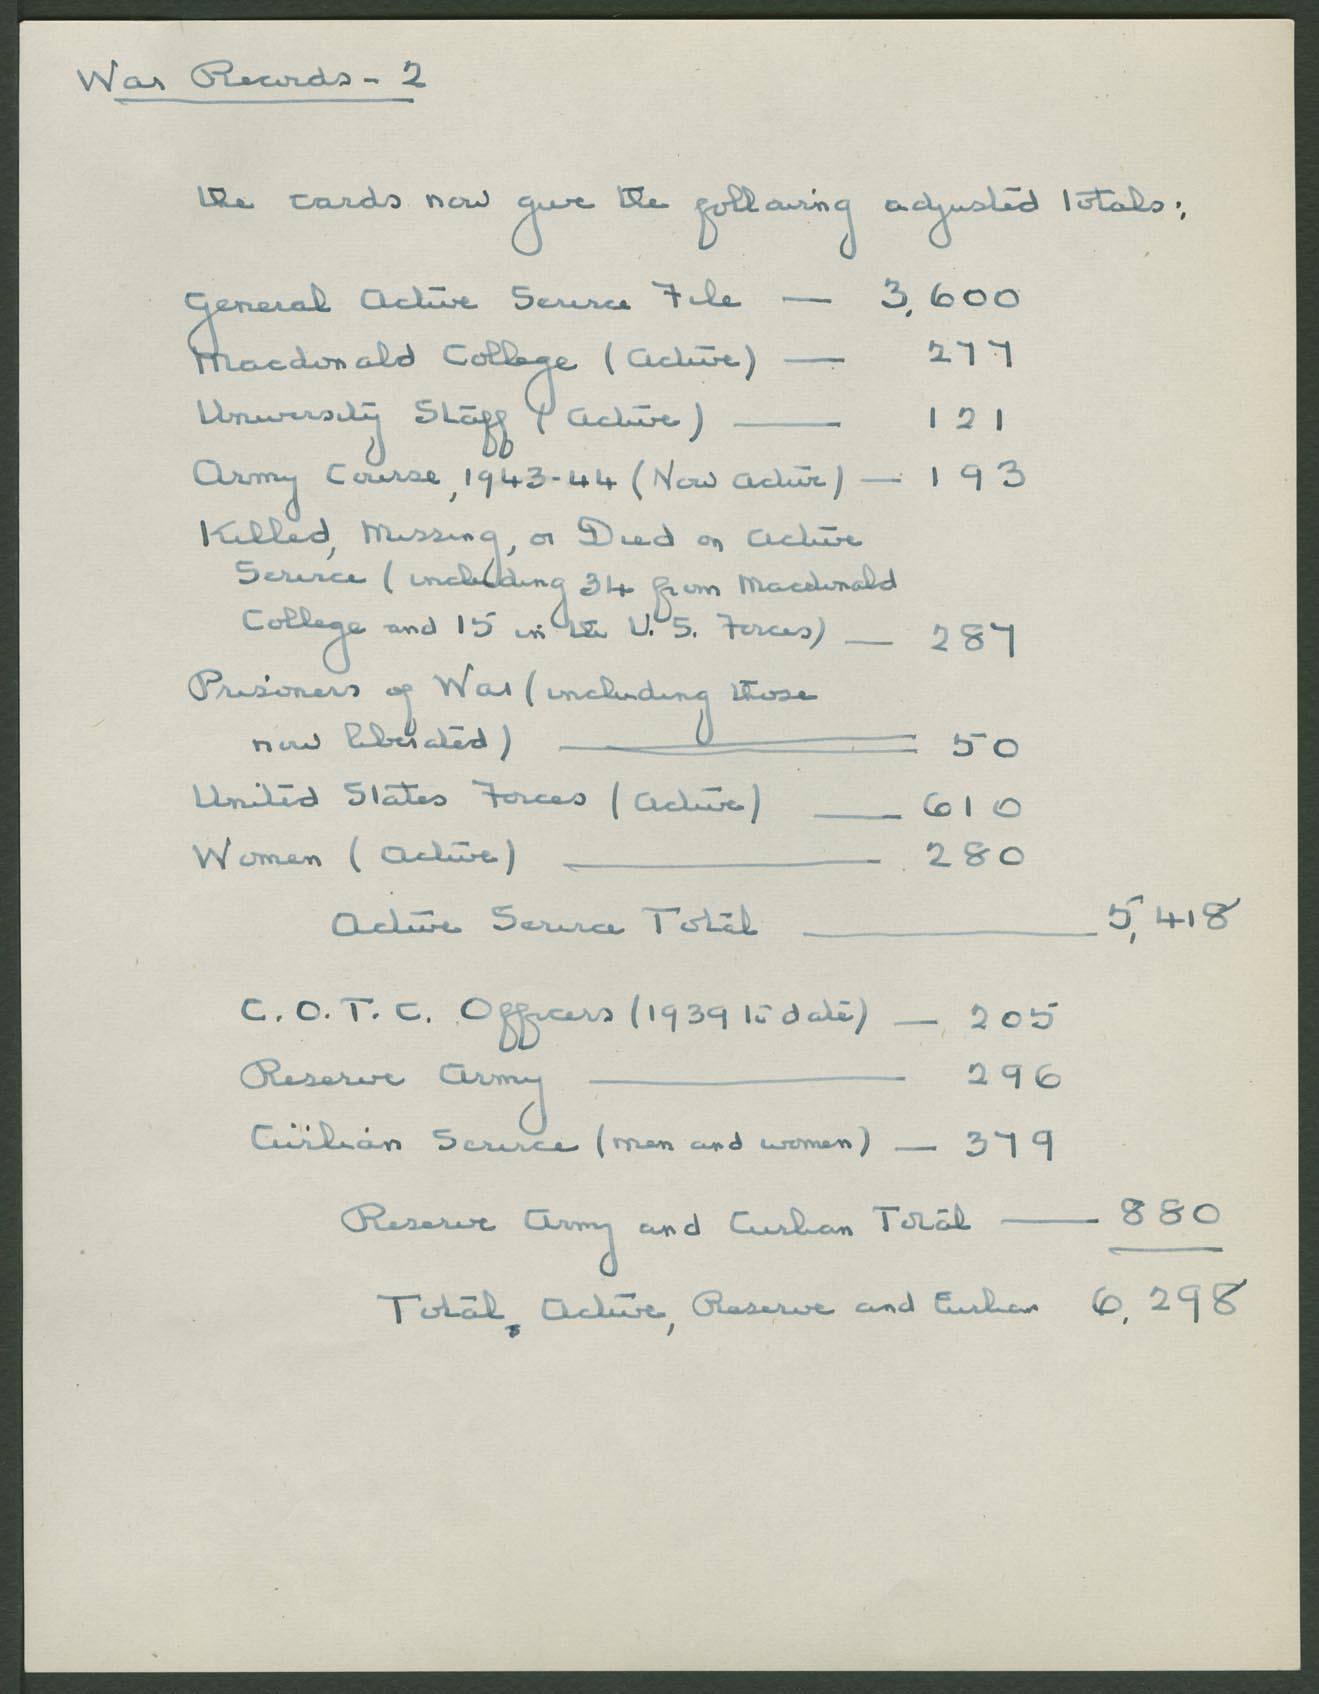 War Records - 2
the cards now give the following adjusted totals:
General Active Service File — 3,600
Macdonald College (Active) — 277
University Staff (Active) — 121
Army Course, 1943-44 (Now active) — 193
Killed, Missing, or Died on Active
Service (including 34 from Macdonald
College and 15 in the U.S. Forces) — 287
Prisoners of War (including those
now liberated) — 50
United States Forces (Active) — 610
Women (Active) — 280
Active Service Total — 5,418
C.O.T.C. Officers (1939 to date) — 205
Reserve Army — 296
Civilian Service (men and women) — 379
Reserve Army and Civilian Total — 880
Total, Active, Reserve and Civilian 6,298